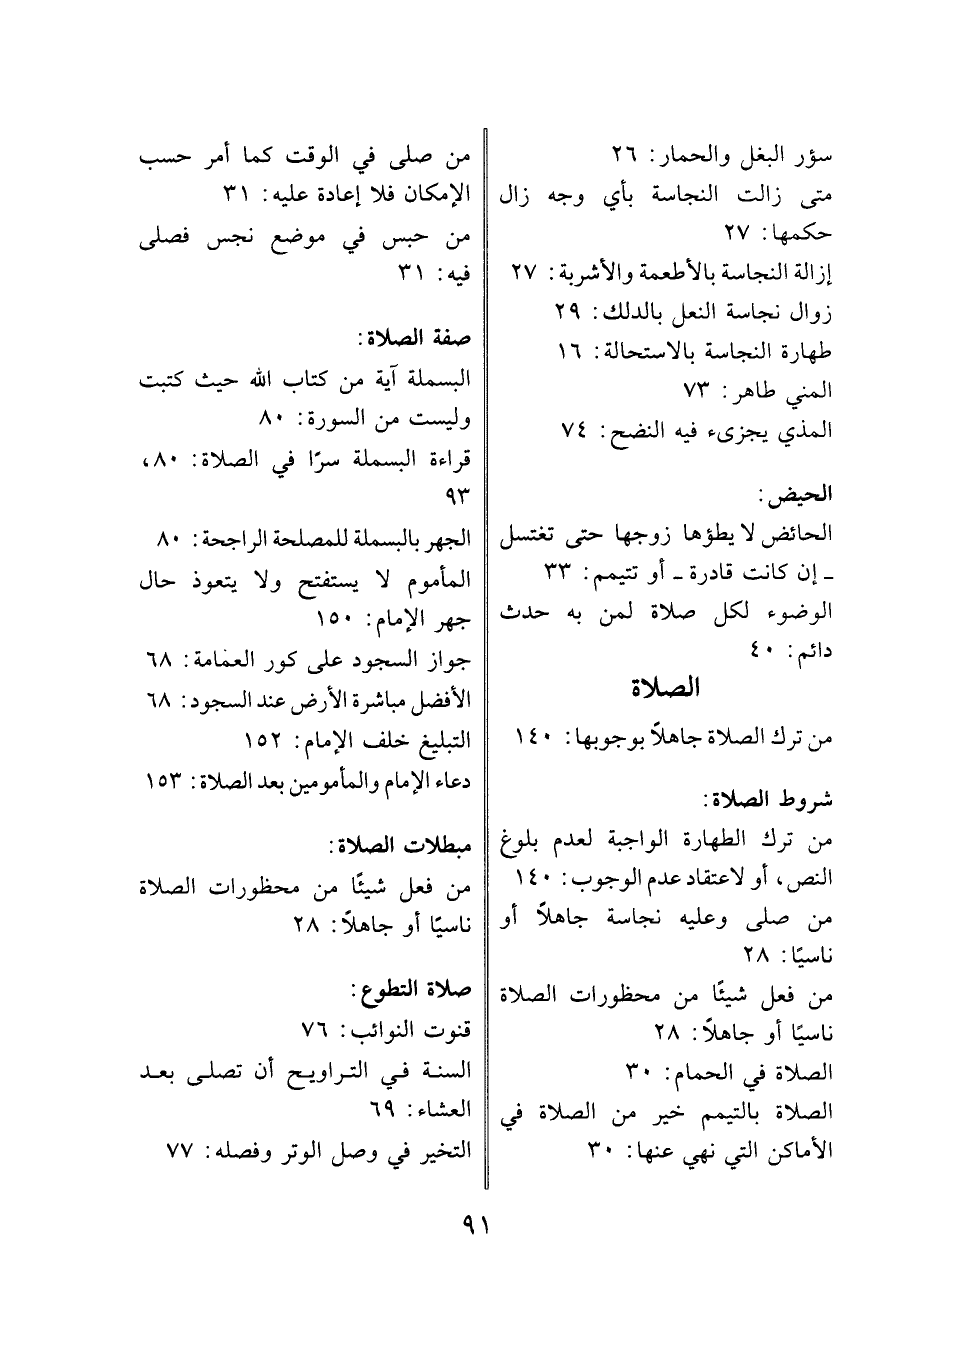 سؤر البغل والحمار: ٢٦
متى زالت النجاسة بأي وجه زال
حكمها: ٢٧
إزالة النجاسة بالأطعمة والأشربة: ٢٧
زوال نجاسة النعل بالدلك: ٢٩
طهارة النجاسة بالاستحالة: ١٦
المني طاهر: ٧٣
المذي يجزىء فيه النضح: ٧٤
الحيض:
الحائض لا يطؤها زوجها حتى تغتسل
ـ إن كانت قادرة ـ أو تتيمم: ٣٣
الوضوء لكل صلاة لمن به حدث
دائم: ٤٠
الصلاة
من ترك الصلاة جاهلاً بوجوبها: ١٤٠
شروط الصلاة:
من ترك الطهارة الواجبة لعدم بلوغ
النص، أو لاعتقاد عدم الوجوب: ١٤٠
من صلى وعليه نجاسة جاهلاً أو
ناسيًا: ٢٨
من فعل شيئًا من محظورات الصلاة
ناسيًا أو جاهلاً: ٢٨
الصلاة في الحمام: ٣٠
الصلاة بالتيمم خير من الصلاة في
الأماكن التي نهي عنها: ٣٠
من صلى في الوقت كما أمر حسب
الإمكان فلا إعادة عليه: ٣١
من حبس في موضع نجس فصلى
فيه: ٣١
صفة الصلاة:
البسملة آية من كتاب الله حيث كتبت
وليست من السورة: ٨٠
قراءة البسملة سرًا في الصلاة: ٨٠،
٩٣
الجهر بالبسملة للمصلحة الراجحة: ٨٠
المأموم لا يستفتح ولا يتعوذ حال
جهر الإمام: ١٥٠
جواز السجود على كور العمامة: ٦٨
الأفضل مباشرة الأرض عند السجود: ٦٨
التبليغ خلف الإمام: ١٥٢
دعاء الإمام والمأمومين بعد الصلاة: ١٥٣
مبطلات الصلاة:
من فعل شيئًا من محظورات الصلاة
ناسيًا أو جاهلاً: ٢٨
صلاة التطوع:
قنوت النوائب: ٧٦
السنة في التراويح أن تصلى بعد
العشاء: ٦٩
التخير في وصل الوتر وفصله: ٧٧
٩١